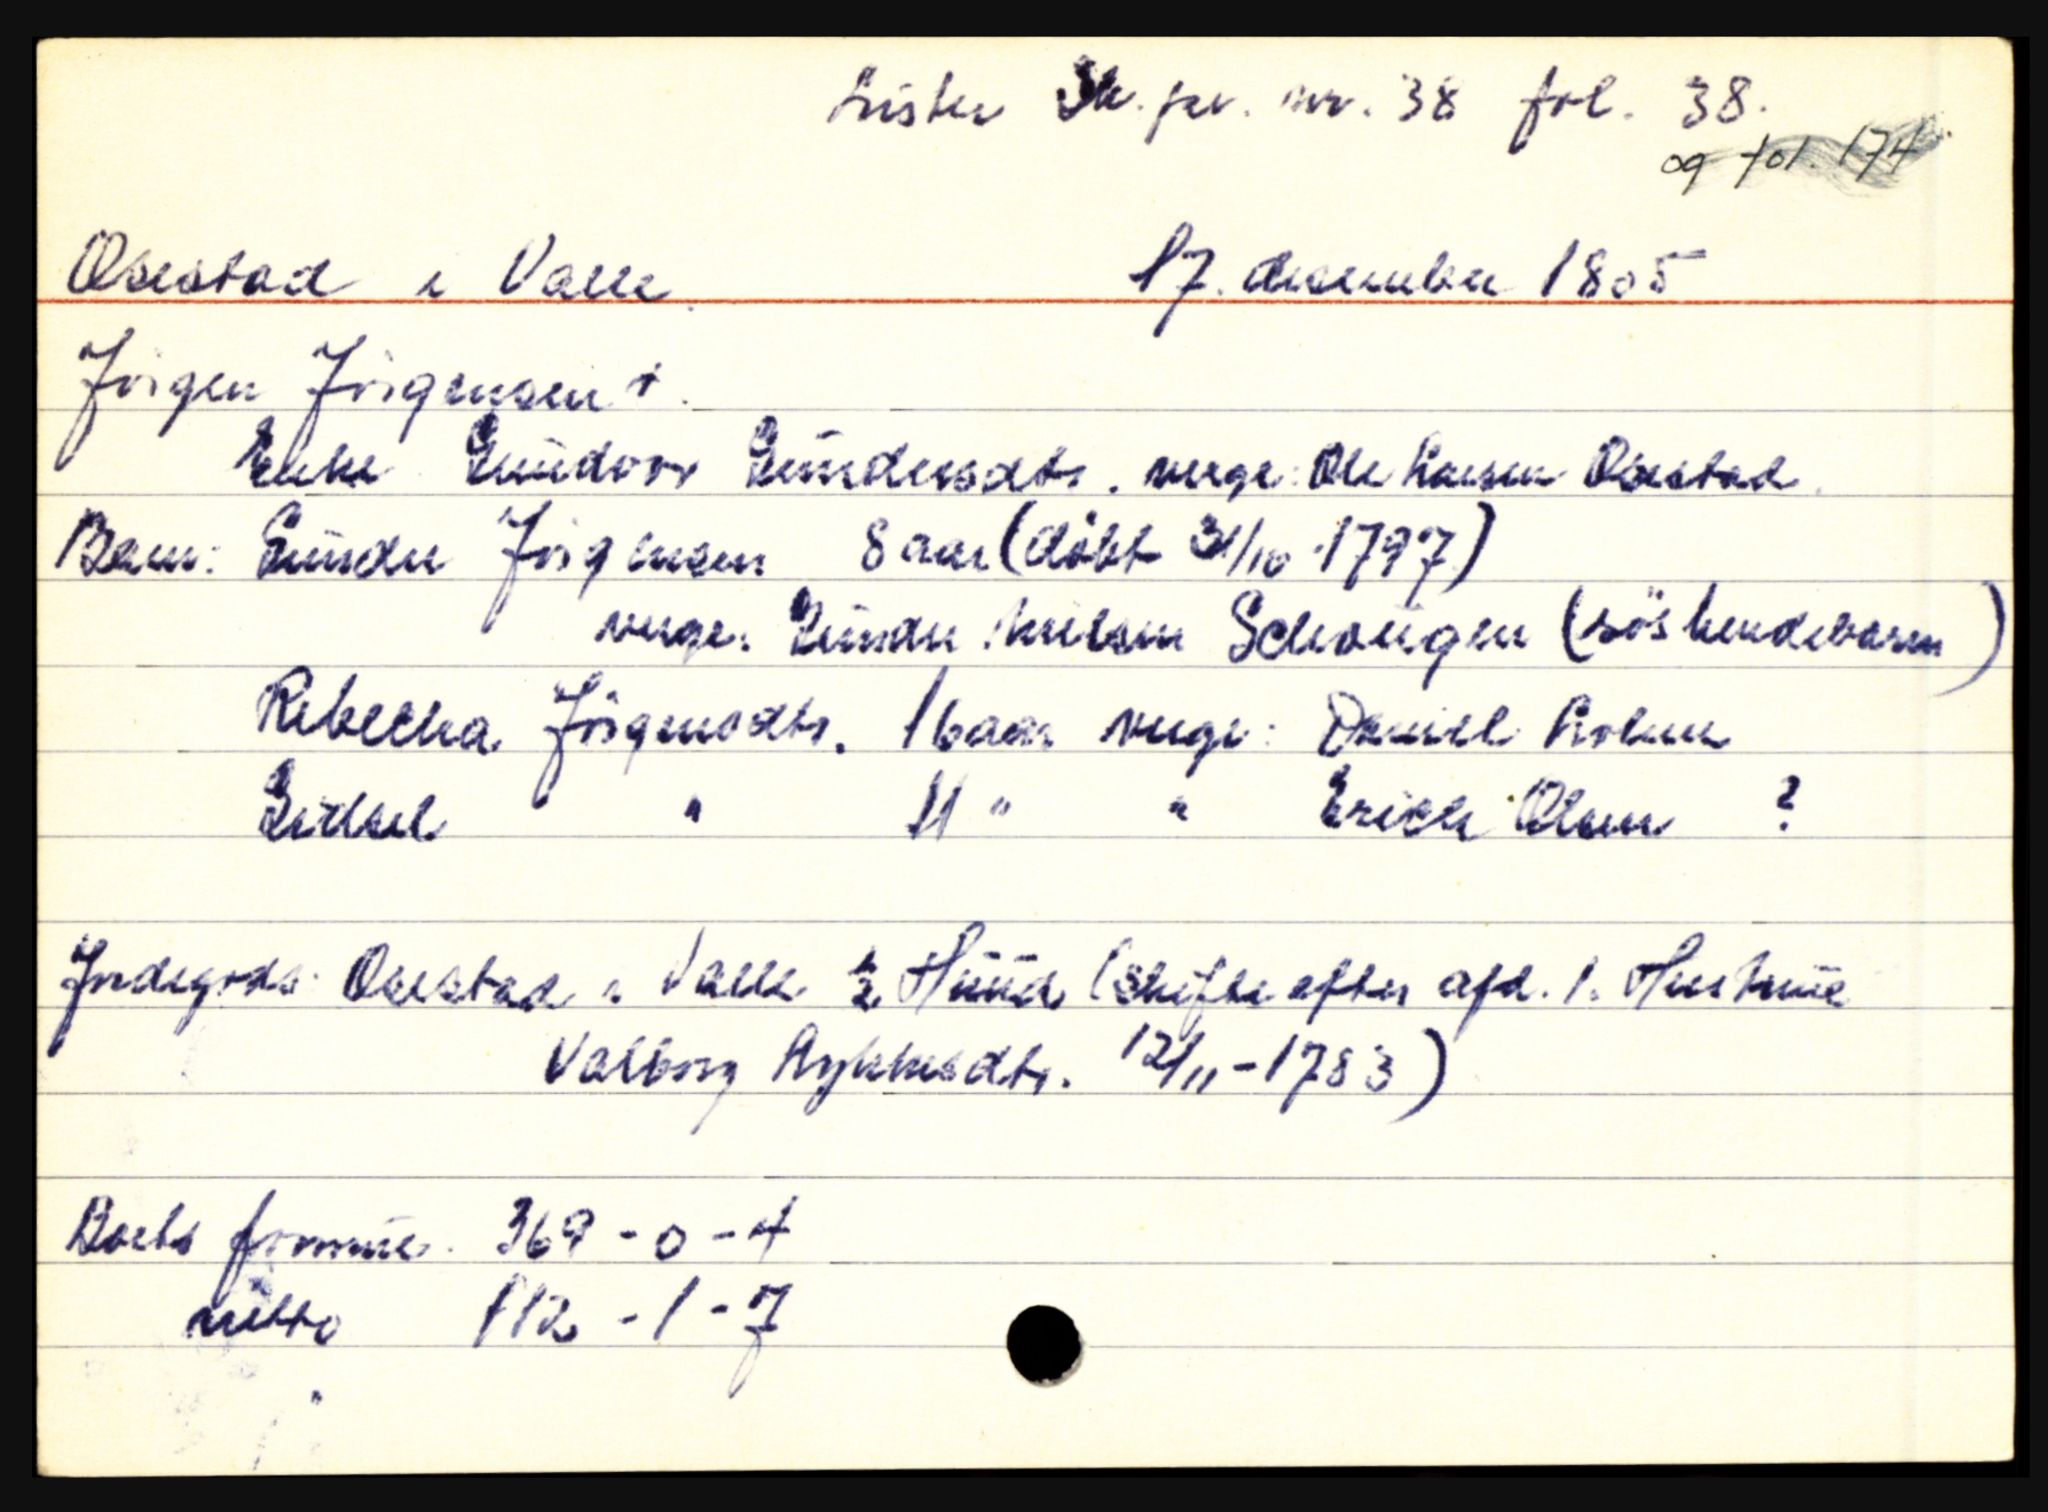 Lister Sk. pr. nr. 38 fol. 38.
og fol. 174
Osestad i Valle. 17. desember 1805
Jörgen Jörgensen +.
Enke Gundvor Gundersdtr. verge: Ole Larsen Osestad.
Barn: Gunder Jörgensen 8 aar (döbt 31/10 1797)
verge: Gunder Nielsen Schougen (söskendebarn)
Rebecka Jörgensdtr. 16 aar verge: Daniel
Sidsel " 11 " " Erich Olsen ?
Jordegods: Osestad i Valle ½ Huud (skifte efter afd. 1. Hustrue
Valborg dtr. 12/11-1783)
Boets formue. 369 - 0 - 4
netto 112 - 1 - 7